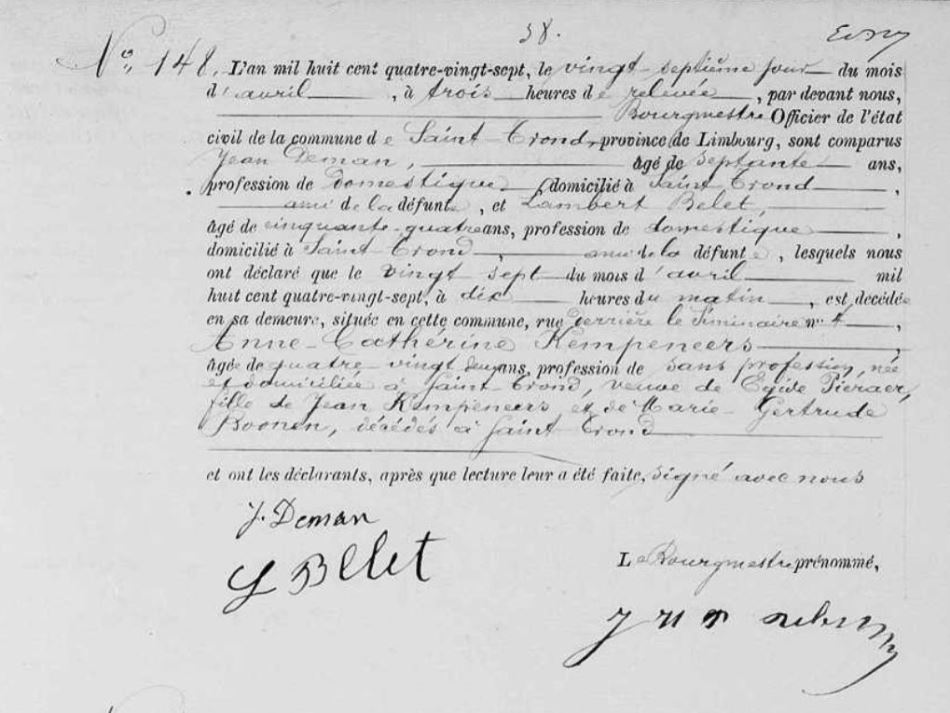 38.
N° 148. L'an mil huit cent quatre-vingt-sept, le vingt-septième jour du mois
d'avril, à trois heures de relevée, par devant nous,
Bourgmestre Officier de l'état
civil de la commune de Saint-Trond, province de Limbourg, sont comparus
Jean Deman, âgé de septante ans,
profession de domestique, domicilié à Saint-Trond,
ami de la défunte, et Lambert Belet,
âgé de cinquante-quatre ans, profession de domestique,
domicilié à Saint-Trond, ami de la défunte, lesquels nous
ont déclaré que le vingt-sept du mois d'avril mil
huit cent quatre-vingt-sept, à dix heures du matin, est décédée
en sa demeure, située en cette commune, rue derrière le Séminaire n° 4,
Anne-Cathérine Kempeneers,
âgée de quatre-vingt deux ans, profession de sans profession, née
et domiciliée à Saint-Trond, veuve de Egide Pieraer,
fille de Jean Kempeneers et de Marie-Gertrude
Boonen, décédés à Saint-Trond
et ont les déclarants, après que lecture leur a été faite, signé avec nous
J. Deman
L Belet
Le Bourgmestre prénommé,